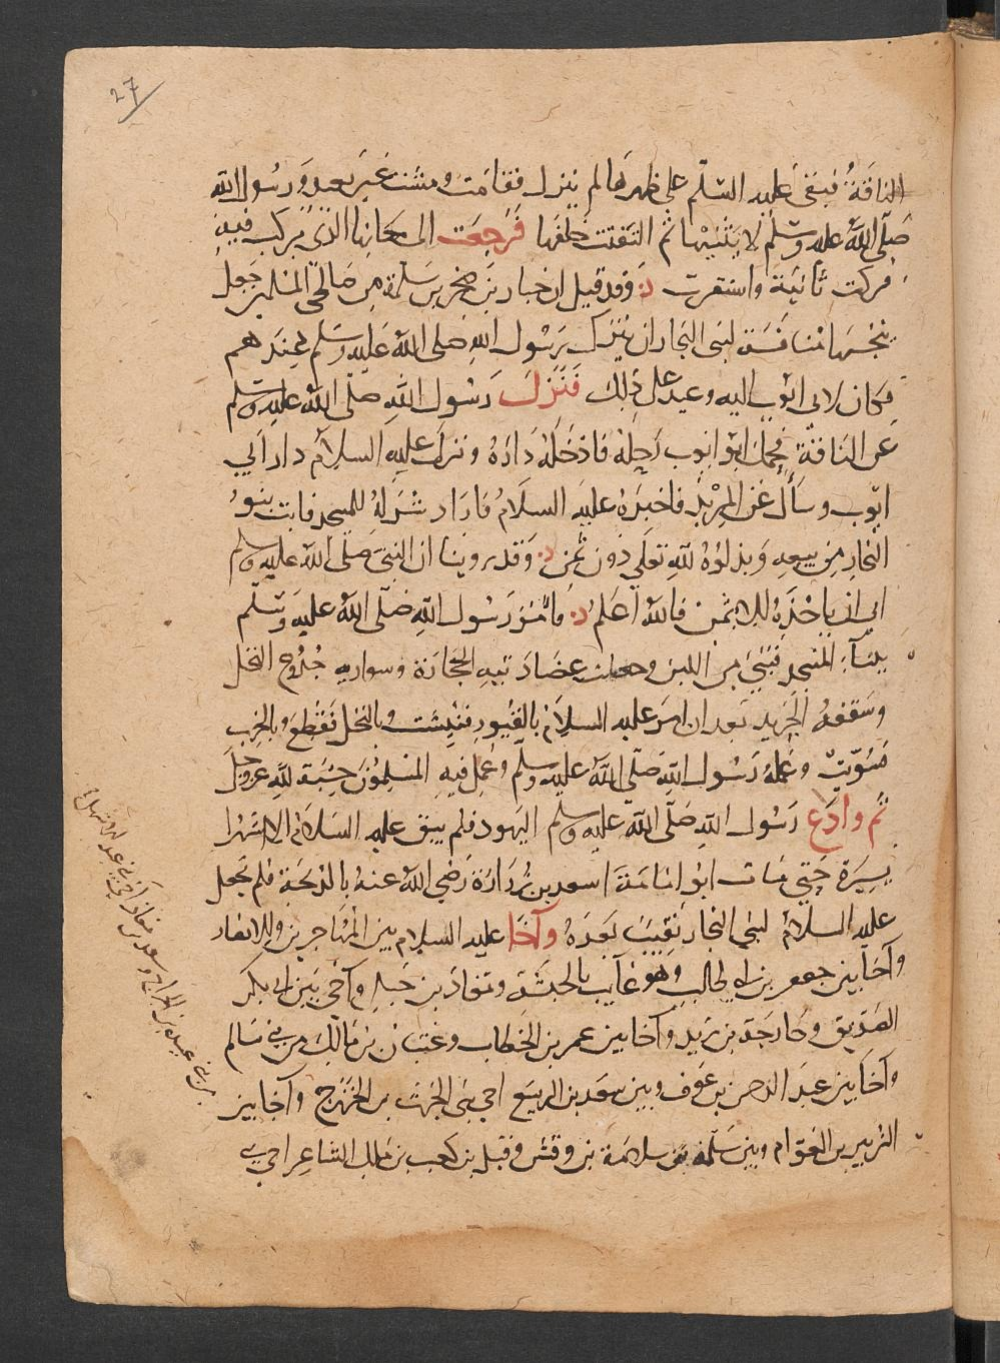 27
الناقة فبقى عليه السّلم على ظهرها لم ينزل فقامت ومشت غير بعيد ورسول الله
صلّى الله عليه وسلّم لا يثنيها ثم التفتت خلفها فرجعت الى مكانها الذى بركت فيه
فبركت ثانية واستقرت وقد قيل ان جبار بن صخر بن سلمة من صالحى المسلمين جعل
ينخسها منافسة لبنى النجار ان ينزل رسول الله صلى الله عليه وسلم عندهم
فكان لابى ايوب اليه وعيد على ذلك فنزل رسول الله صلّى الله عليه وسلّم
عن الناقة فحمل ابو ايوب رحله فادخله داره ونزل عليه السلام دار ابي
ايّوب وسأل عن المربد فاخبره عليه السلام فاراد شراه للمسجد فابت بنوا
النجار من بيعه وبذلوه لله تعلى دون ثمن وقد روينا ان النبى صلى الله عليه وسلم
ابى ان ياخذه الا بثمن فالله اعلم فامر رسول الله صلّى الله عليه وسلّم
ببنآء المسجد فبنى من اللبن وجعلت عضادتيه الحجارة وسواريه جذوع النخل
وسقفه الجريد بعد ان امر عليه السلام بالقبور فنبشت وبالنخل فقطع وبالخرب
فسوّيت وعمله رسول الله صلّى الله عليه وسلم وعمل فيه المسلمون حسبة لله عز وجل
ثم وادع رسول الله صلّى الله عليه وسلّم اليهود فلم يبق عليه السلام الا اشهرا
يسيرة حتى مات ابو امامة اسعد بن زرارة رضي الله عنه بالذبحة فلم يجعل
عليه السلام لبني النجار نقيبا بعده وآخا عليه السلام بين المهاجرين والانصار
وآخا بين جعفر بن ابى طالب وهو غآيب بالحبشة ومعاذ بن جبل وآخى بين ابى بكر
الصديق وخارجة بن زيد وآخا بين عمر بن الخطاب وعتبان بن مالك من بنى سالم
وآخا بين عبد الرحمن بن عوف وبين سعد بن الربيع اخى بنى الحرث بن الخزرج وآخا بين
الزبير بن العوّام وبين سلمة بن سلامة بن وقش وقيل بن كعب بن مالك الشاعر اخى بنى
بين عبيدة بن الجراح وسعد بن معاذ اخى بنى عبد الاشهل